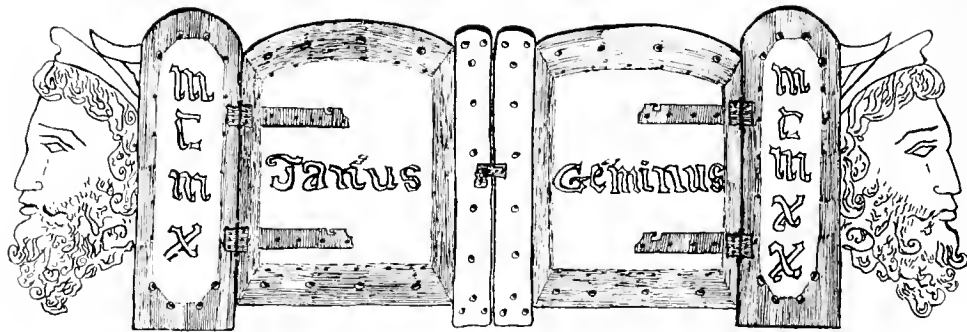 mcmx
Janus
Geminus
mcmxx